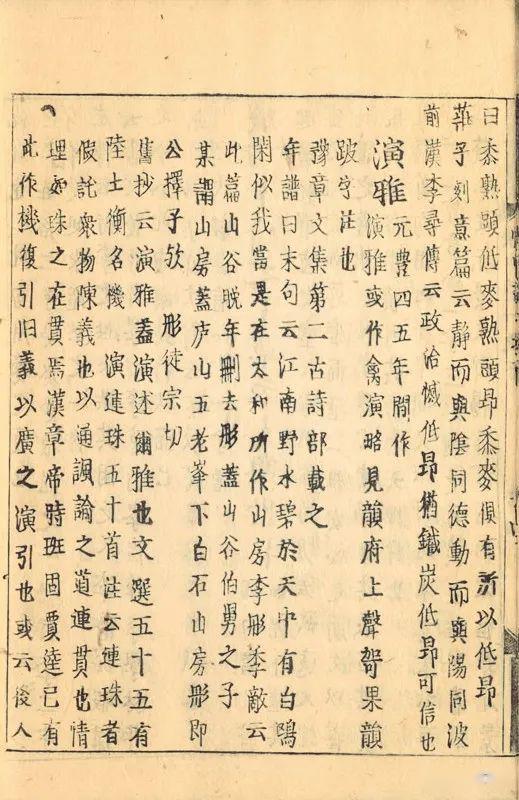 曰黍熟頭低麥熟頭昂黍麥俱有所以低昂
莊子刻意篇云静而與陰同德動而與陽同波
前漢李尋傳云政治憾低昂猶鐵炭低昂可信也
演雅 元豊四五年間作
演雅或作禽演略見韻府上聲哿果韻
跛字注也
豫章文集第二古詩部載之
年譜曰末句云江南野水碧於天中有白鴎
閑似我當是在太和所作山房李彤李敵云
此篇山谷晩年刪去彤蓋山谷伯男之子
某謂山房蓋庐山五老峯下白石山房彤即
公擇子欤 彤徒宗切
舊抄云演雅蓋演述爾雅也文選五十五有
陸士衡名機 演連珠五十首注云連珠者
假託衆物陳義也以通諷諭之道連貫也情
理如珠之在貫焉漢章帝時班固賈逵已有
此作機復引旧義以廣之演引也或云後人